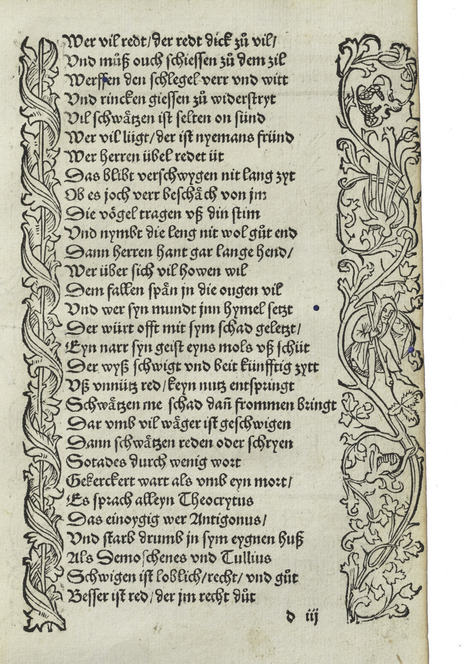 Wer vil redt/der redt dick zů vil/
Vnd můß ouch schiessen zů dem zil
Werffen den schlegel verr vnd witt
Vnd rincken giessen zů widerstryt
Vil schwåtzen ist selten on sünd
Wer vil liigt/der ist nyemans fründ
Wer herren übel redet üt
Das blibt verschwygen nit lang zyt
Ob es joch verr beschåch von jm
Die vögel tragen vß din stim
Vnd nymbt die leng nit wol gůt end
Dann herren hant gar lange hend/
Wer über sich vil howen wil
Dem fallen spån jn die ougen vil
Vnd wer syn mundt jnn hymel setzt
Der würt offt mit sym schad geletzt/
Eyn narr syn geist eyns mols vß schüt
Der wyß schwigt vnd beit künfftig zytt
Vß vnnütz red/keyn nutz entspringt
Schwåtzen me schad dañ frommen bringt
Dar vmb vil wåger ist geschwigen
Dann schwåtzen reden oder schryen
Sotades durch wenig wort
Gekerckert wart als vmb eyn mort/
Es sprach alleyn Theocrytus
Das einoygig wer Antigonus/
Vnd starb drumb jn sym eygnen huß
Als Demoschenes vnd Tullius
Schwigen ist loblich/recht/vnd gůt
Besser ist red/der jm recht důt
d iij